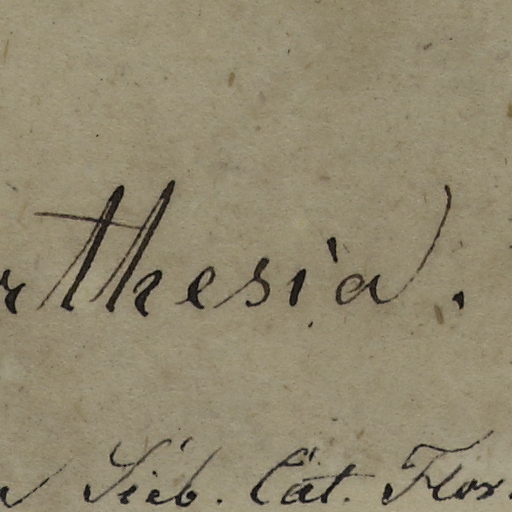 rthesia.
Sieb. Cat. Flor.